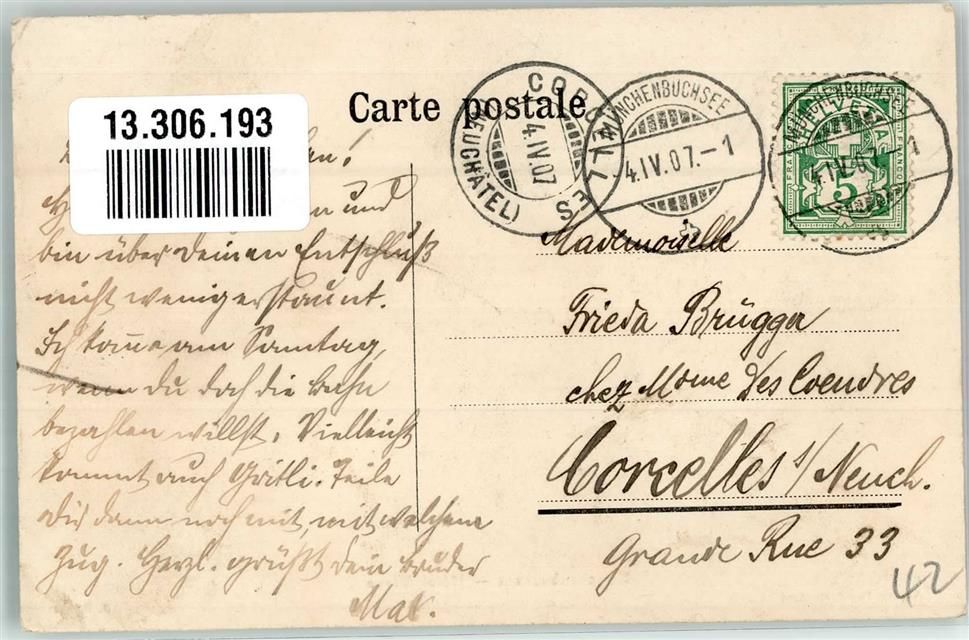 Carte postale
13.306.193
CORCELLES
(NEUCHÂTEL)
4.IV.07
MÜNCHENBUCHSEE
4.IV.07.-1
MÜNCHENBUCHSEE
4.IV.07.-1
HELVETIA
FRANCO
5
und
bin über Deinen Entschluß
nicht wenig erstaunt.
Ich komme am Sonntag,
wenn Du doch die Bahn
bezahlen willst. Vielleicht
kommt auch Gritli. Teile
Dir dann noch mit, mit welchem
Zug. Herzl. grüßt Dein Bruder
Max.
Mademoiselle
Frieda Brügger
chez Mme des Coendres
Corcelles s/Neuch.
Grande Rue 33
42